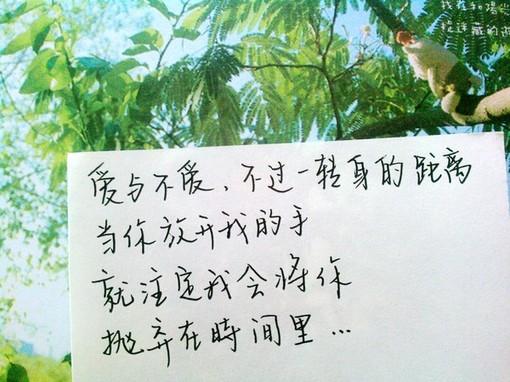 爱与不爱、不过一转身的距离
当你放开我的手
就注定我会将你
抛弃在時间里...